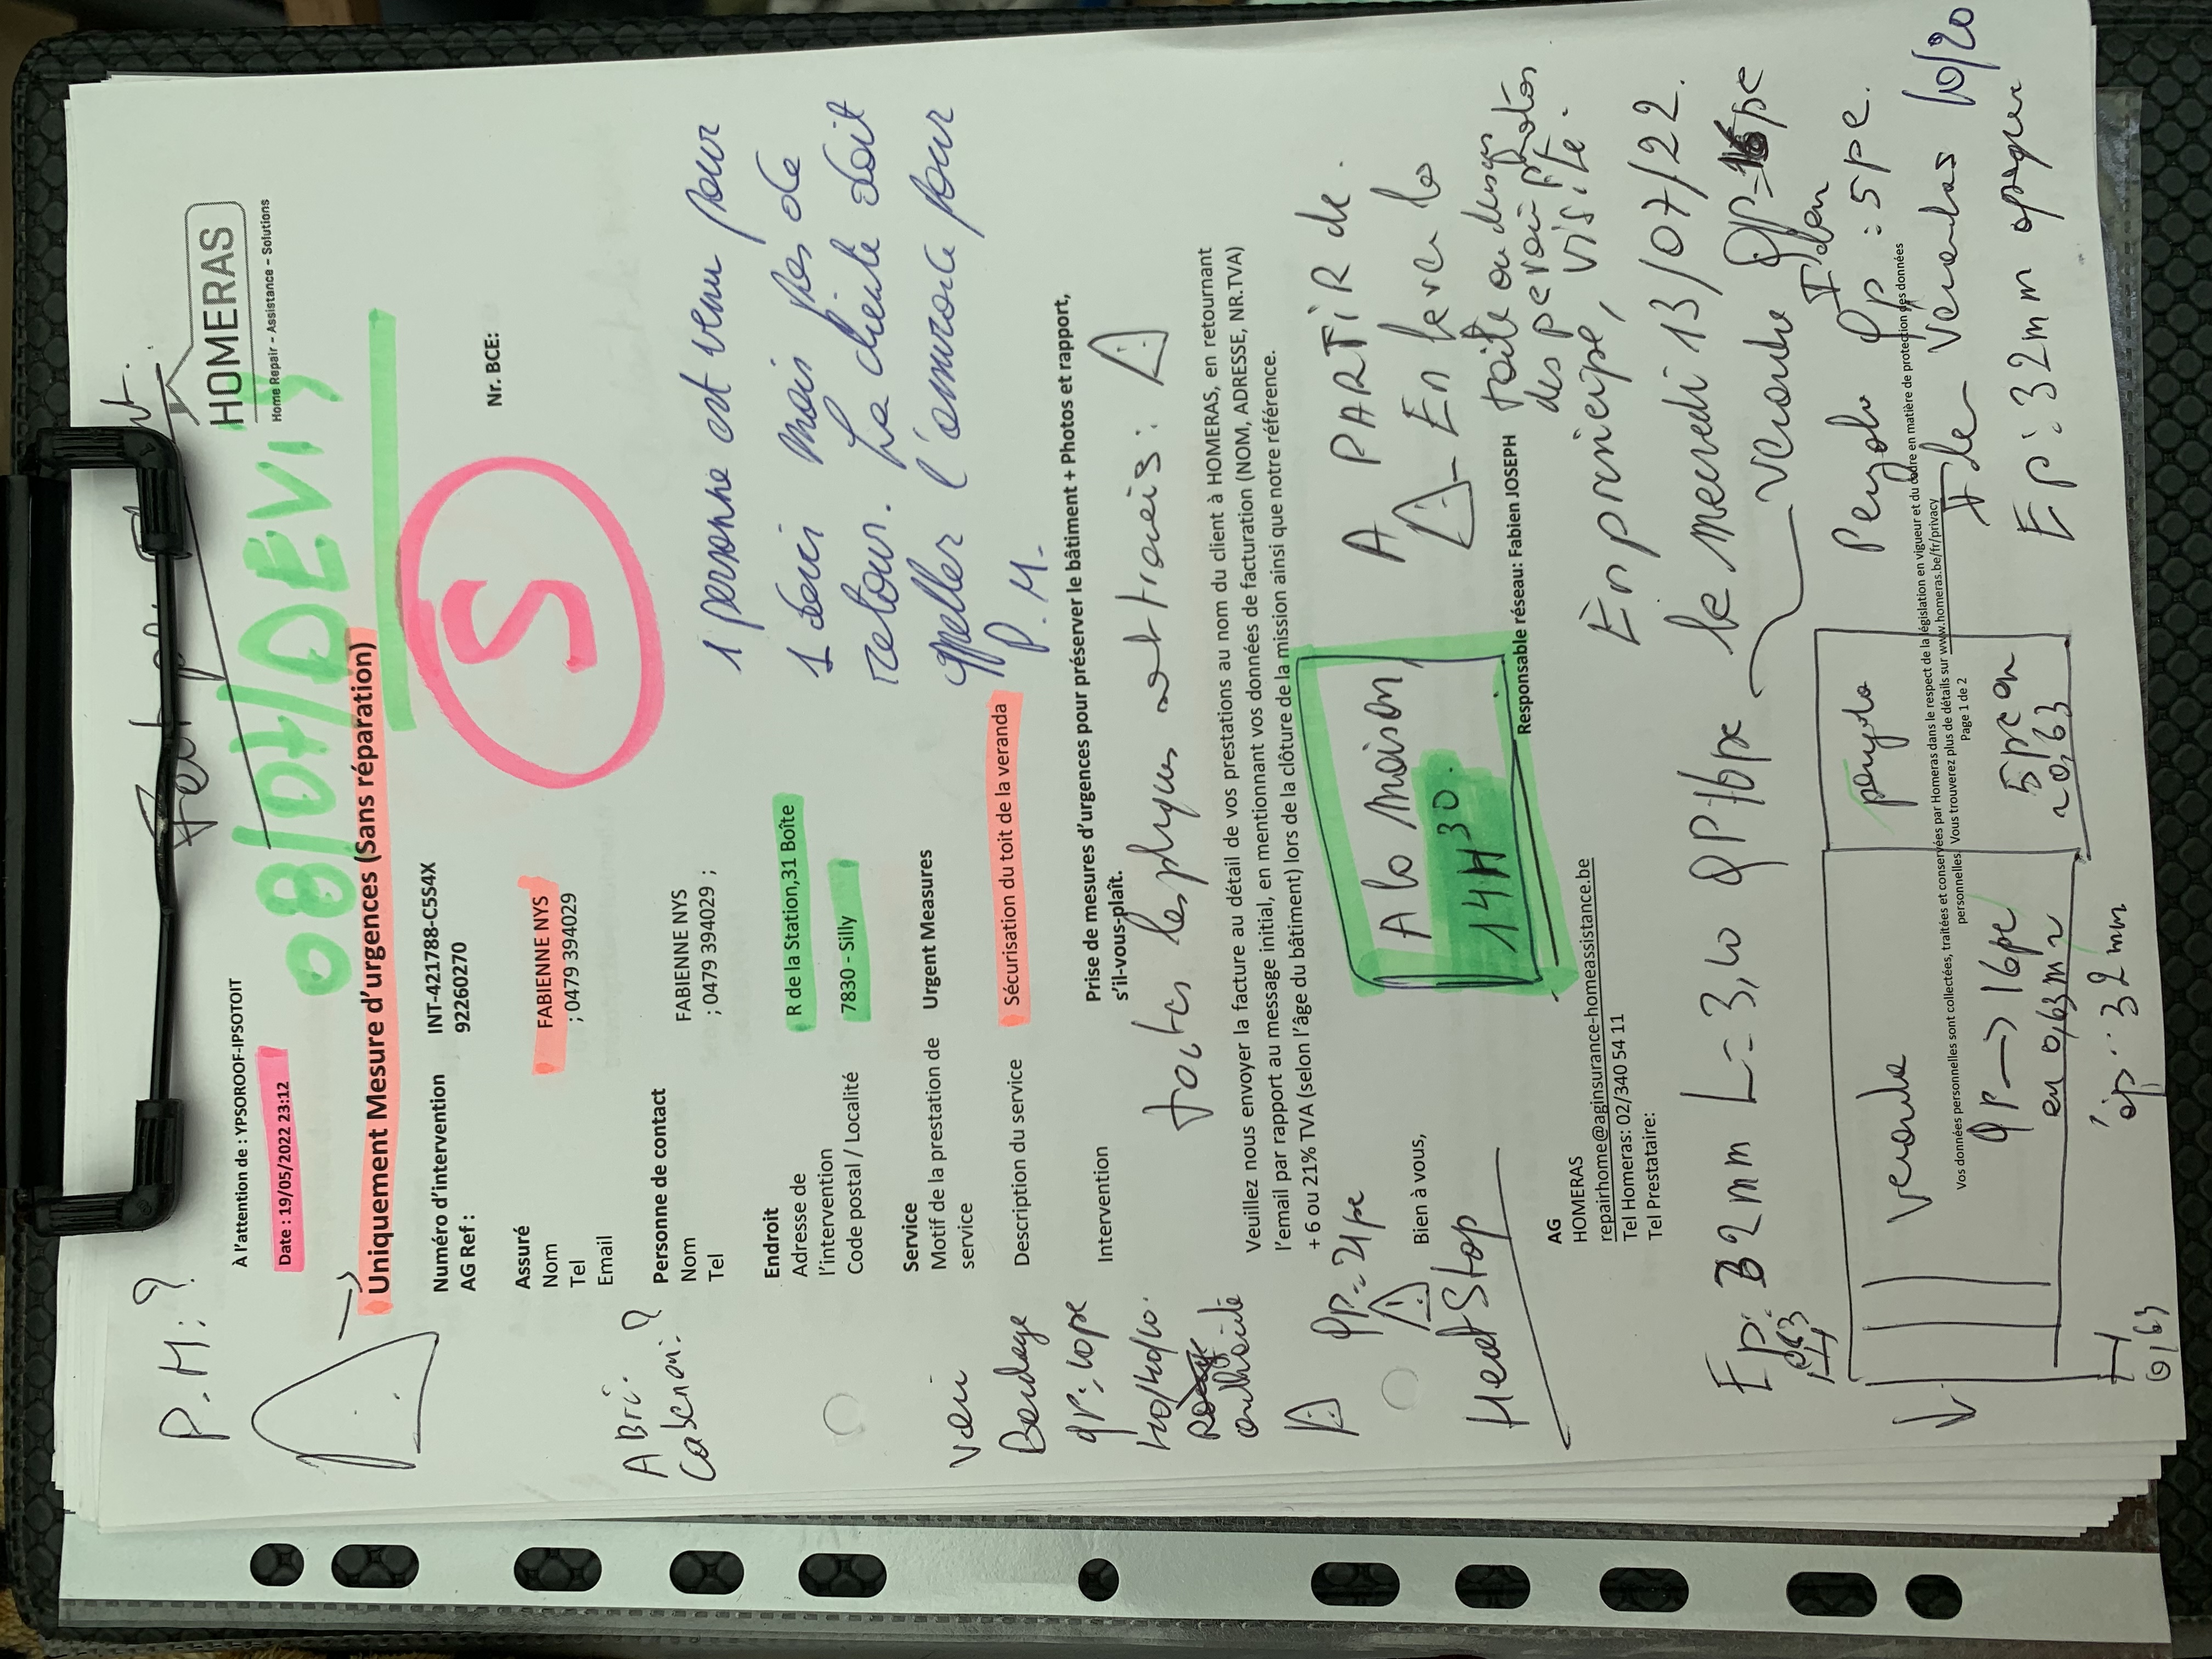 P.M: ?
HOMERAS
Home Repair – Assistance – Solutions
À l'attention de : YPSOROOF-IPSOTOIT
Date : 19/05/2022 23:12
08/07/DEVIS
Uniquement Mesure d'urgences (Sans réparation)
Numéro d'intervention INT-421788-C5S4X
AG Ref : 92260270
S
Nr. BCE:
Assuré
Nom FABIENNE NYS
Tel ; 0479 394029
Email
Personne de contact
Nom FABIENNE NYS
Tel ; 0479 394029 ;
ABri:
Cabenon: ?
1 personne est venu pour
1 devis mais pas de
retour. La cliente doit
appeller l'assurance pour
P.M.
Endroit
Adresse de
l'intervention R de la Station,31 Boîte
Code postal / Localité 7830 - Silly
Service
Motif de la prestation de
service Urgent Measures
Description du service Sécurisation du toit de la veranda
Intervention Prise de mesures d'urgences pour préserver le bâtiment + Photos et rapport,
s'il-vous-plaît.
toutes les plaques
Bardage
QP: 10pc
Veuillez nous envoyer la facture au détail de vos prestations au nom du client à HOMERAS, en retournant
l'email par rapport au message initial, en mentionnant vos données de facturation (NOM, ADRESSE, NR.TVA)
+ 6 ou 21% TVA (selon l'âge du bâtiment) lors de la clôture de la mission ainsi que notre référence.
QP: 21pc
Bien à vous,
Heat Stop
A la maison
14H30.
A PARTIR de.
En principe, visite.
le mercredi 13/07/22.
AG
HOMERAS
repairhome@aginsurance-homeassistance.be
Tel Homeras: 02/340 54 11
Tel Prestataire:
Responsable réseau: Fabien JOSEPH
Ep: 32mm L=3,10 QP 16pc
veranda QP=16pc
Pergola QP: 5pc.
Verandas 10/20
Ep: 32mm opaque
Vos données personnelles sont collectées, traitées et conservées par Homeras dans le respect de la législation en vigueur et du cadre en matière de protection des données
personnelles. Vous trouverez plus de détails sur www.homeras.be/fr/privacy
Page 1 de 2
veranda
QP → 16pc
en 0,63m
ep: 32mm
pergola
5pc en
0,63
0,63